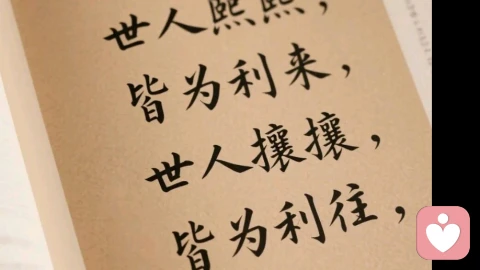 世人熙熙，
皆为利来，
世人攘攘，
皆为利往，